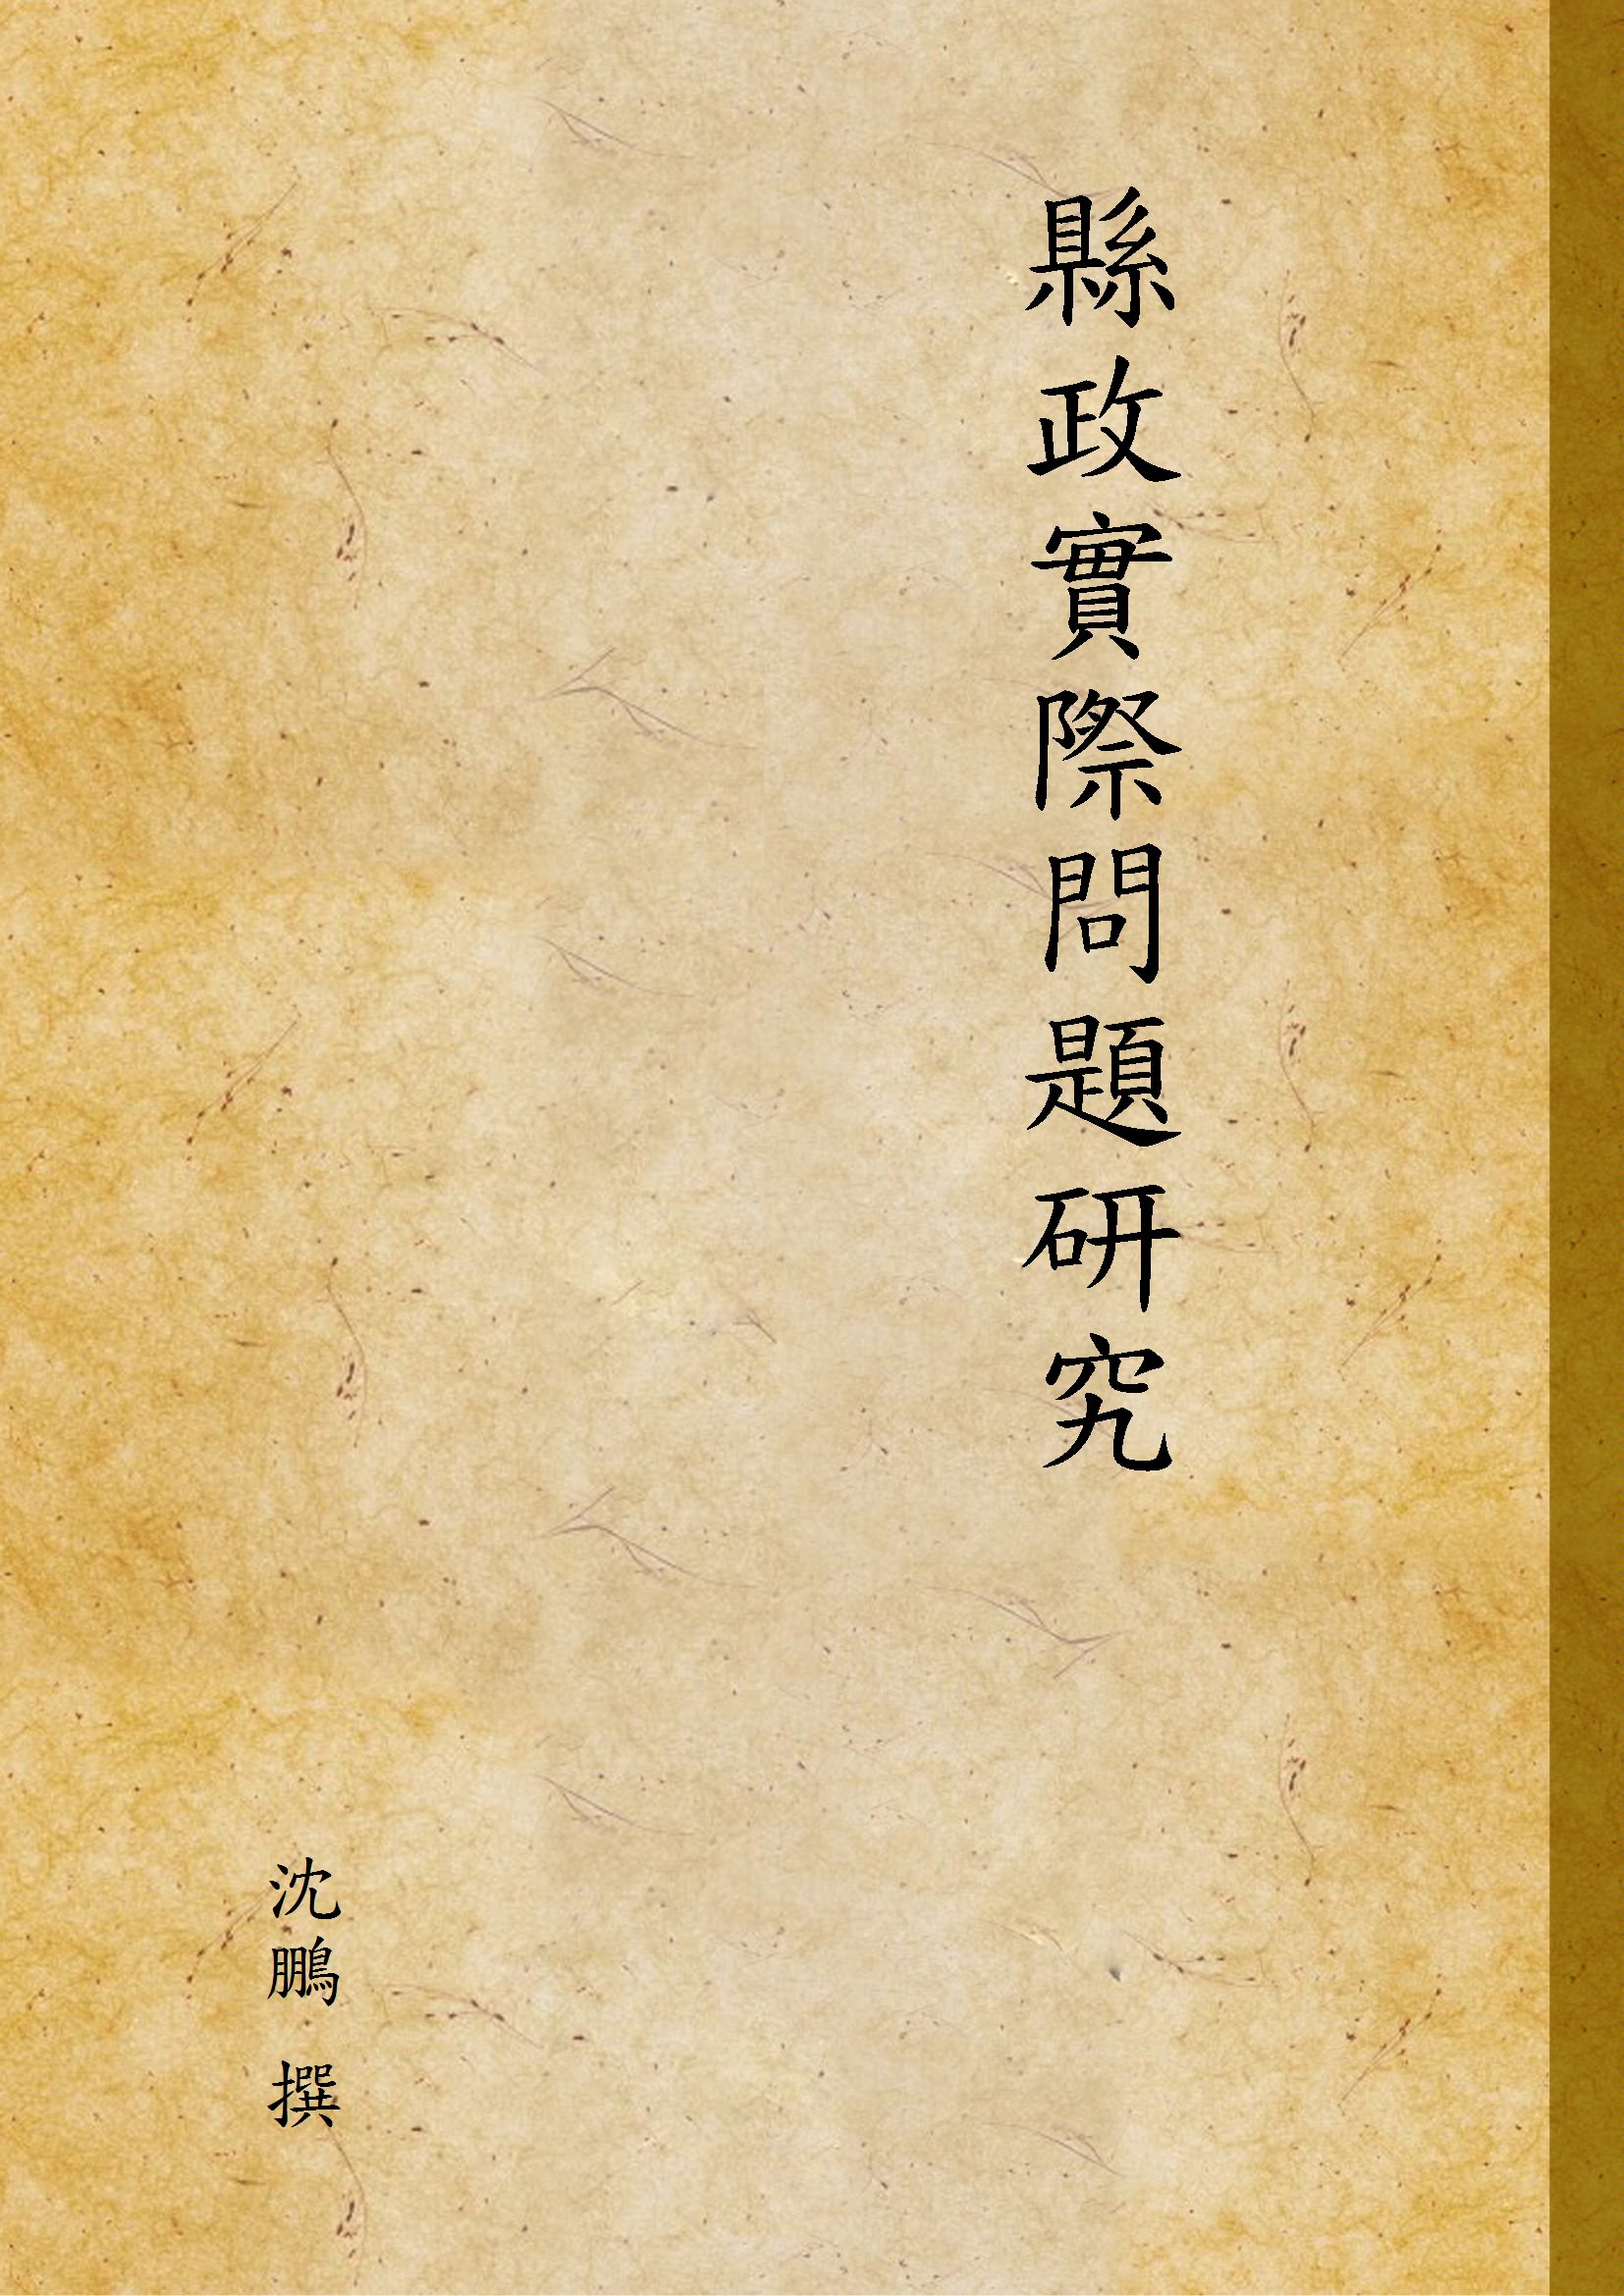 縣政實際問題研究
沈鵬 撰